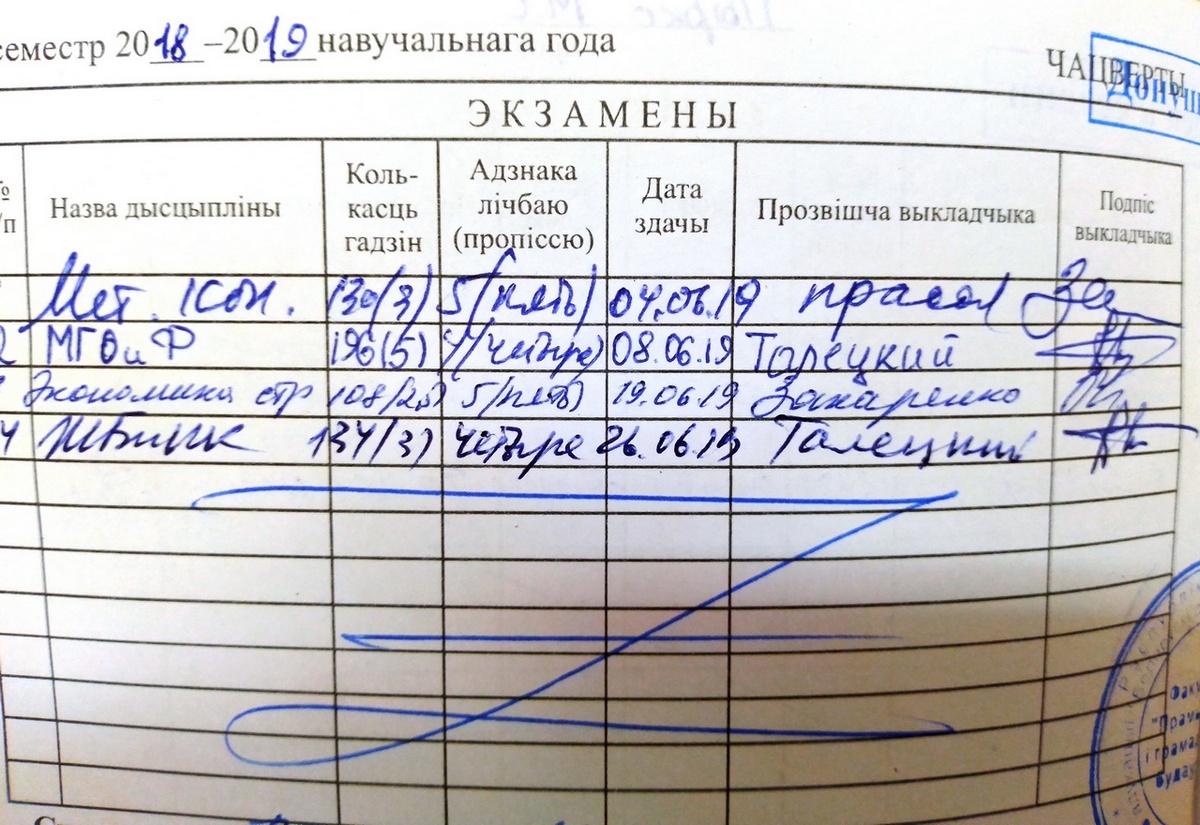 семестр 2018–2019 навучальнага года
ЧАЦВЕРТЫ
Допуш
ЭКЗАМЕНЫ
№ п/п Назва дысцыпліны Коль-касць гадзін Адзнака лічбаю (пропіссю) Дата здачы Прозвішча выкладчыка Подпіс выкладчыка
Мет. кон. 130(3) 5(пять) 04.06.19 Прасол
2 МГОиФ 196(5) 4(четыре) 08.06.19 Талецкий
Экономика стр 108(2,5) 5(пять) 19.06.19 Захаренко
4 ЖБиКК 134(3) четыре 26.06.19 Талецкий
Факу
"Прам
і грама
будаў